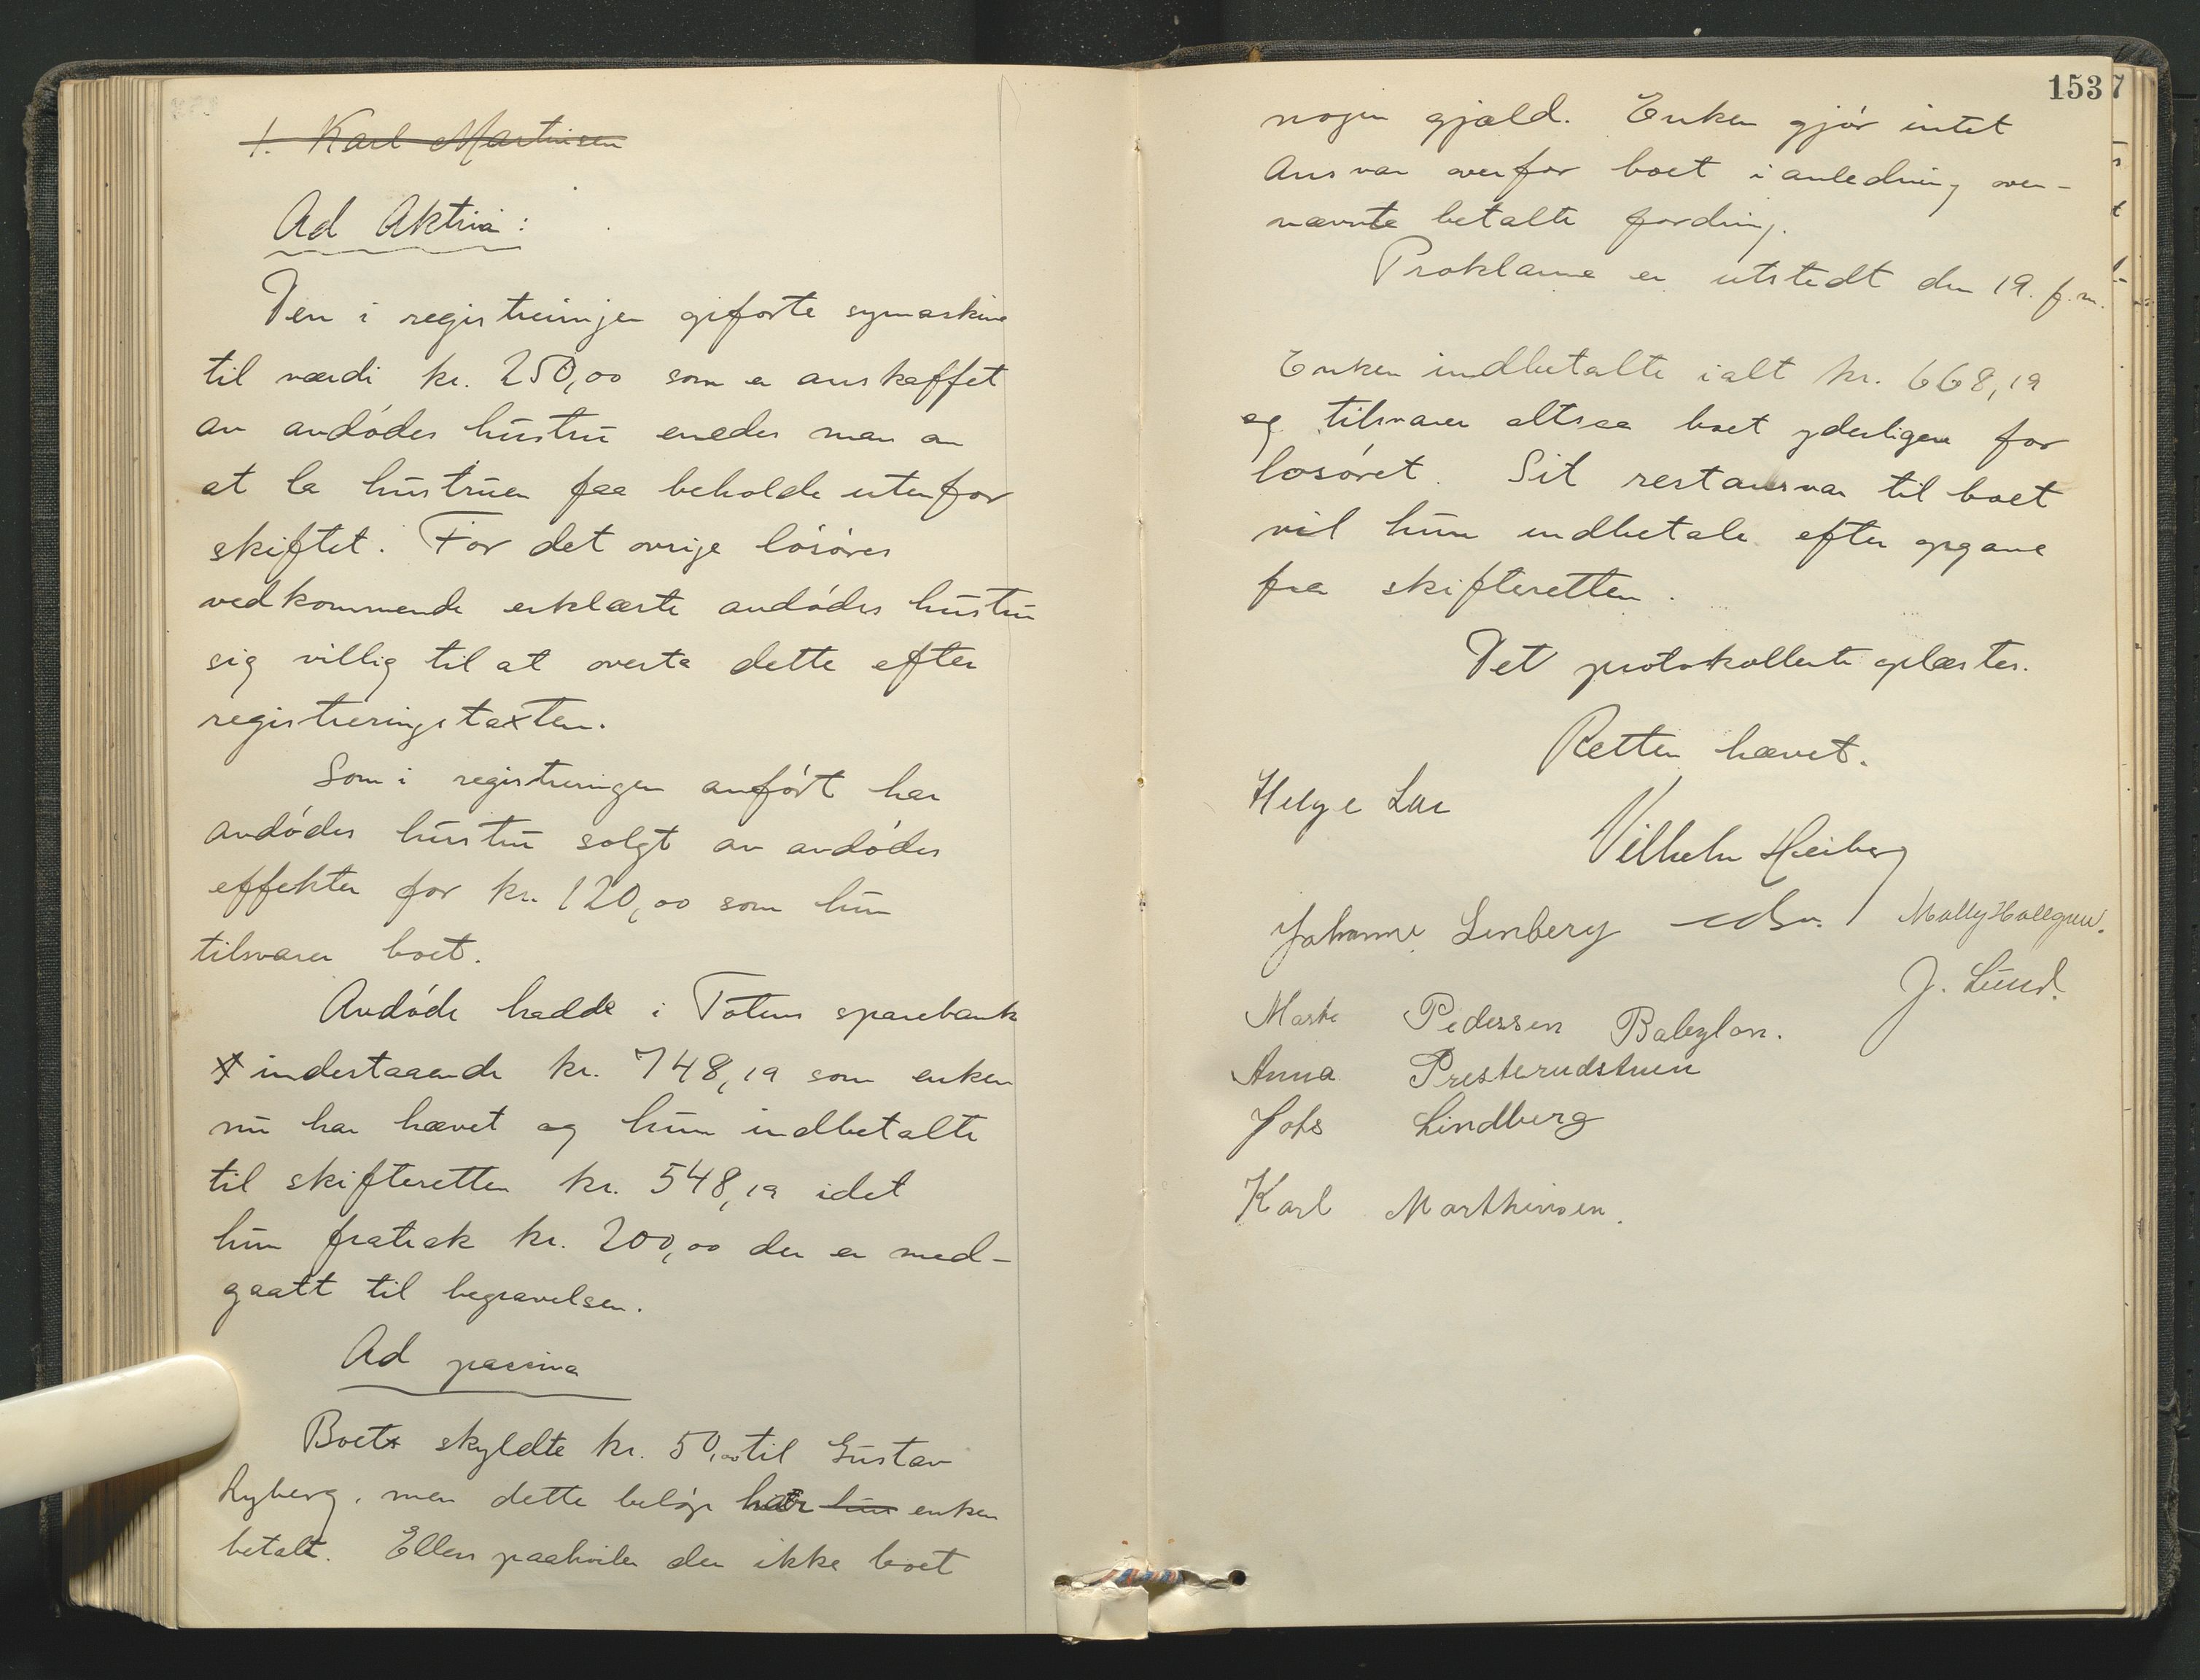 1. Karl Martinsen
Ad Aktiva:
Den i registreringen opførte symaskine
til værdi kr. 250,00 som er anskaffet
av avdødes hustru enedes man om
at la hustruen faa beholde utenfor
skiftet. For det øvrige løsøres
vedkommende erklærte avdødes hustru
sig villig til at overta dette efter
registreringstaxten.
Som i registreringen anført har
avdødes hustru solgt av avdødes
effekter for kr. 120,00 som hun
tilsvarer boet.
Avdøde hadde i Totens sparebank
indestaaende kr. 748,19 som enken
nu har hævet og hun indbetalte
til skifteretten kr. 548,19 idet
hun fratrak kr. 200,00 der er med-
gaatt til begravelsen.
Ad passiva
Boet skyldte kr. 50,00 til Gustav
Lyberg, men dette beløp har hun enken
betalt. Ellers paahviler der ikke boet
153
7
nogen gjæld. Enken gjør intet
Ansvar overfor boet i anledning oven-
nævnte betalte fordring.
Proklama er utstedt den 19. f.m.
Enken indbetalte ialt kr. 668,19
og tilsvarer altsaa boet yderligere for
løsøret. Sit restansvar til boet
vil hun indbetale efter opgave
fra skifteretten.
Det protokollerte oplæstes.
Retten hævet.
Helge Lie
Vilhelm Heiberg
Johanne Linberg edsv. Molly Hallgren.
J. Lund.
Marte Pedersen Babylon.
Anna Presterudstuen
Johs Lindberg
Karl Marthinsen.